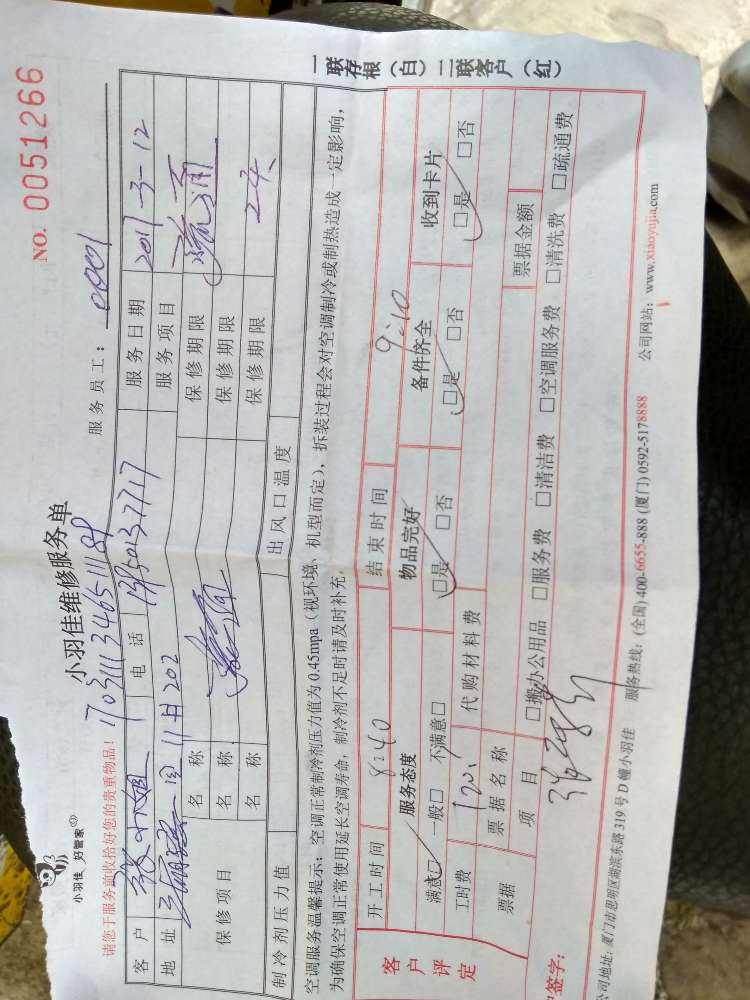 一联存根（白）二联客户（红）
小羽佳 好管家
小羽佳维修服务单
NO. 0051266
请您于服务前收拾好您的贵重物品！
服务员工：
客户 电话 服务日期 2017-3-12
地址 服务项目
保修项目 名称 保修期限
名称 保修期限
名称 保修期限
制冷剂压力值 出风口温度
空调服务温馨提示：空调正常制冷剂压力值为0.45mpa（视环境、机型而定），拆装过程会对空调制冷或制热造成一定影响，
为确保空调正常使用延长空调寿命，制冷剂不足时请及时补充。
客户评定
开工时间 8:40 结束时间 9:10
服务态度 物品完好 备件齐全 收到卡片
满意□ 一般□ 不满意□ □是 □否 □是 □否 □是 □否
工时费 代购材料费
票据 票据名称 票据金额
项目 □搬办公用品 □服务费 □清洁费 □空调服务费 □清洗费 □疏通费
签字：
公司地址：厦门市思明区湖滨东路319号D幢小羽佳 服务热线：(全国) 400-6655-888 (厦门) 0592-5178888 公司网站：www.xiaoyujia.com